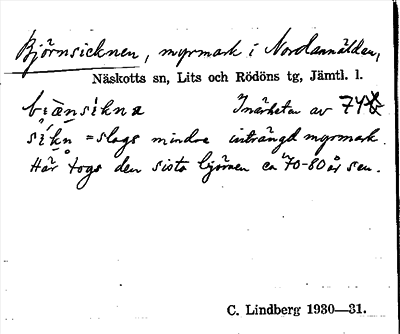 Björnsicknen, myrmark i Nordannälden,
Näskotts sn, Lits och Rödöns tg, Jämtl. l.
I närheten av 74
síkn = slags mindre inträngd myrmark.
Här togs den sista björnen ca 70-80 år sen.
C. Lindberg 1930—31.